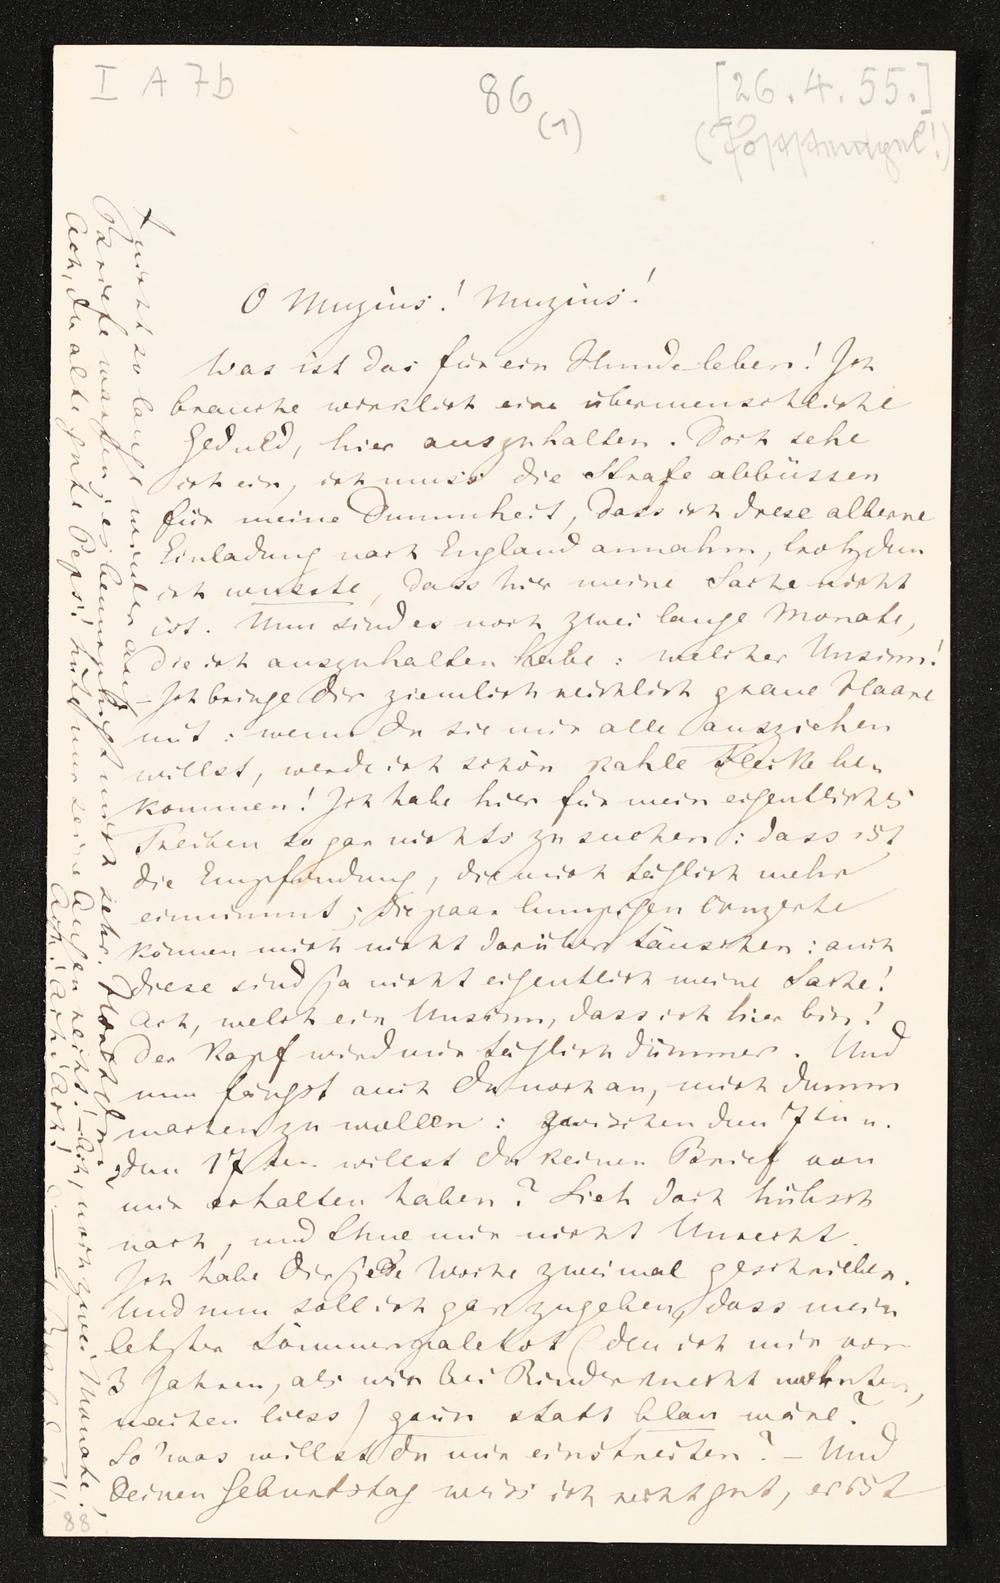 I A 7b
86
(1)
[26.4.55.]
O Muzius! Muzius!
Was ist das für ein Hundeleben! Ich
brauche wirklich eine übermenschliche
Geduld, hier auszuhalten. Doch sehe
ich ein, ich muss die Strafe abbüssen
für meine Dummheit, dass ich diese alberne
Einladung nach England annahm, trotzdem
ich wusste, dass hier meine Sache nicht
ist. Nun sind es noch zwei lange Monate,
die ich auszuhalten habe: welcher Unsinn!
– Ich bringe Dir ziemlich reichlich graue Haare
mit: wenn Du sie mir alle ausziehen
willst, werde ich schön kahle Flecke be-
kommen! Ich habe hier für mein eigentliches
Treiben so gar nichts zu suchen: dass ist
die Empfindung, die mich täglich mehr
einnimmt; die paar lumpigen Conzerte
können mich nicht darüber täuschen: auch
diese sind ja nicht eigentlich meine Sache!
Ach, welch ein Unsinn, dass ich hier bin!
Der Kopf wird mir täglich dümmer. Und
nun fängst auch Du noch an, mich dumm
machen zu wollen: zwischen dem 7ten u.
dem 17ten willst Du keinen Brief von
mir erhalten haben? Sieh doch hübsch
nach, und thue mir nicht Unrecht.
Ich habe Dir jede Woche zweimal geschrieben.
Und nun soll ich gar zugeben, dass mein
letzter Sommerpaletot (den ich mir vor
3 Jahren, als wir bei Rinderknecht wohnten,
machen liess) grün statt blau wäre?
So 'was willst Du mir einstreiten? – Und
Deinen Geburtstag weiss ich recht gut, er ist
nicht so lange wieder auf
Briefe warten; es beunruhigt mich sehr. Hörst Du?
Ach, Du alte gute Peps! hüte nur seine Augen recht! – Ach, noch zwei Monate!
Ach! Ach! Ach!
88